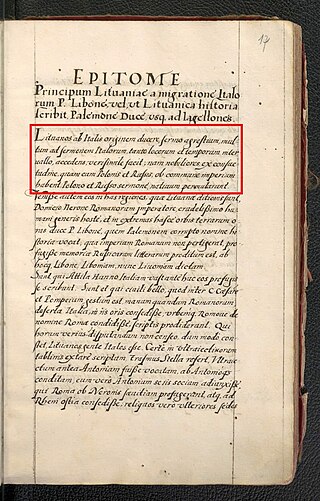 17
EPITOME
Principum Lituaniae a migratione Italo
rum P. Libone, vel, ut Lituanica historia
scribit, Palemone Duce, usq. ad Iagellones.
Lituanos ab Italis originem ducere, sermo agrestium, mul
tum ad sermonem Italorum, tanto locorum et temporum inter
uallo, accedens, verisimile facit; nam nobiliores ex consue
tudine, quam cum Polonis et Russis, ob commune imperium
habent, Polono et Russo sermone, natiuum permutarunt.
autem eos in has regiones, quae Lituania dicuntur,
Domitio Nerone, Romanorum imperatore crudelissimo hu
mani generis hoste, et in extremas hasce orbis terrarum o
ras duce P. Libone, quem Palemonem corrupto nomine hi
storia vocat, qua imperium Romanum non pertigerat, pro
fugisse memoria Rutenicarum litterarum proditum est, ab
hocq. Libone, Libonum, nunc Liuoniam dictam.
Sunt qui Attila Hunno Italiam vastante huc eos profugis
se scribunt. Sunt et qui ciuili bello, quod inter C. Caesarem
et Pompeium gestum est, manum quandam Romanorum
deserta Italia, in iis oris consedisse, urbemq. Romoue de
nomine Roma condidisse, scriptis prodiderunt. Qui
horum verius disputandum non censeo, dum modo con
stet, Lituanos gente Italos esse. Certe in
tabulam extare scriptam, Erasmus Stella refert,
ctum antea Antoniam fuisse vocitatam, ab Antonijs
conditam, cum vero Antonium se iis socium adiunxisse,
qui Roma ob Neronis saeuitiam profugerant, atq. ad
Rheni ostia consedisse, reliquos vero ulteriores sedes